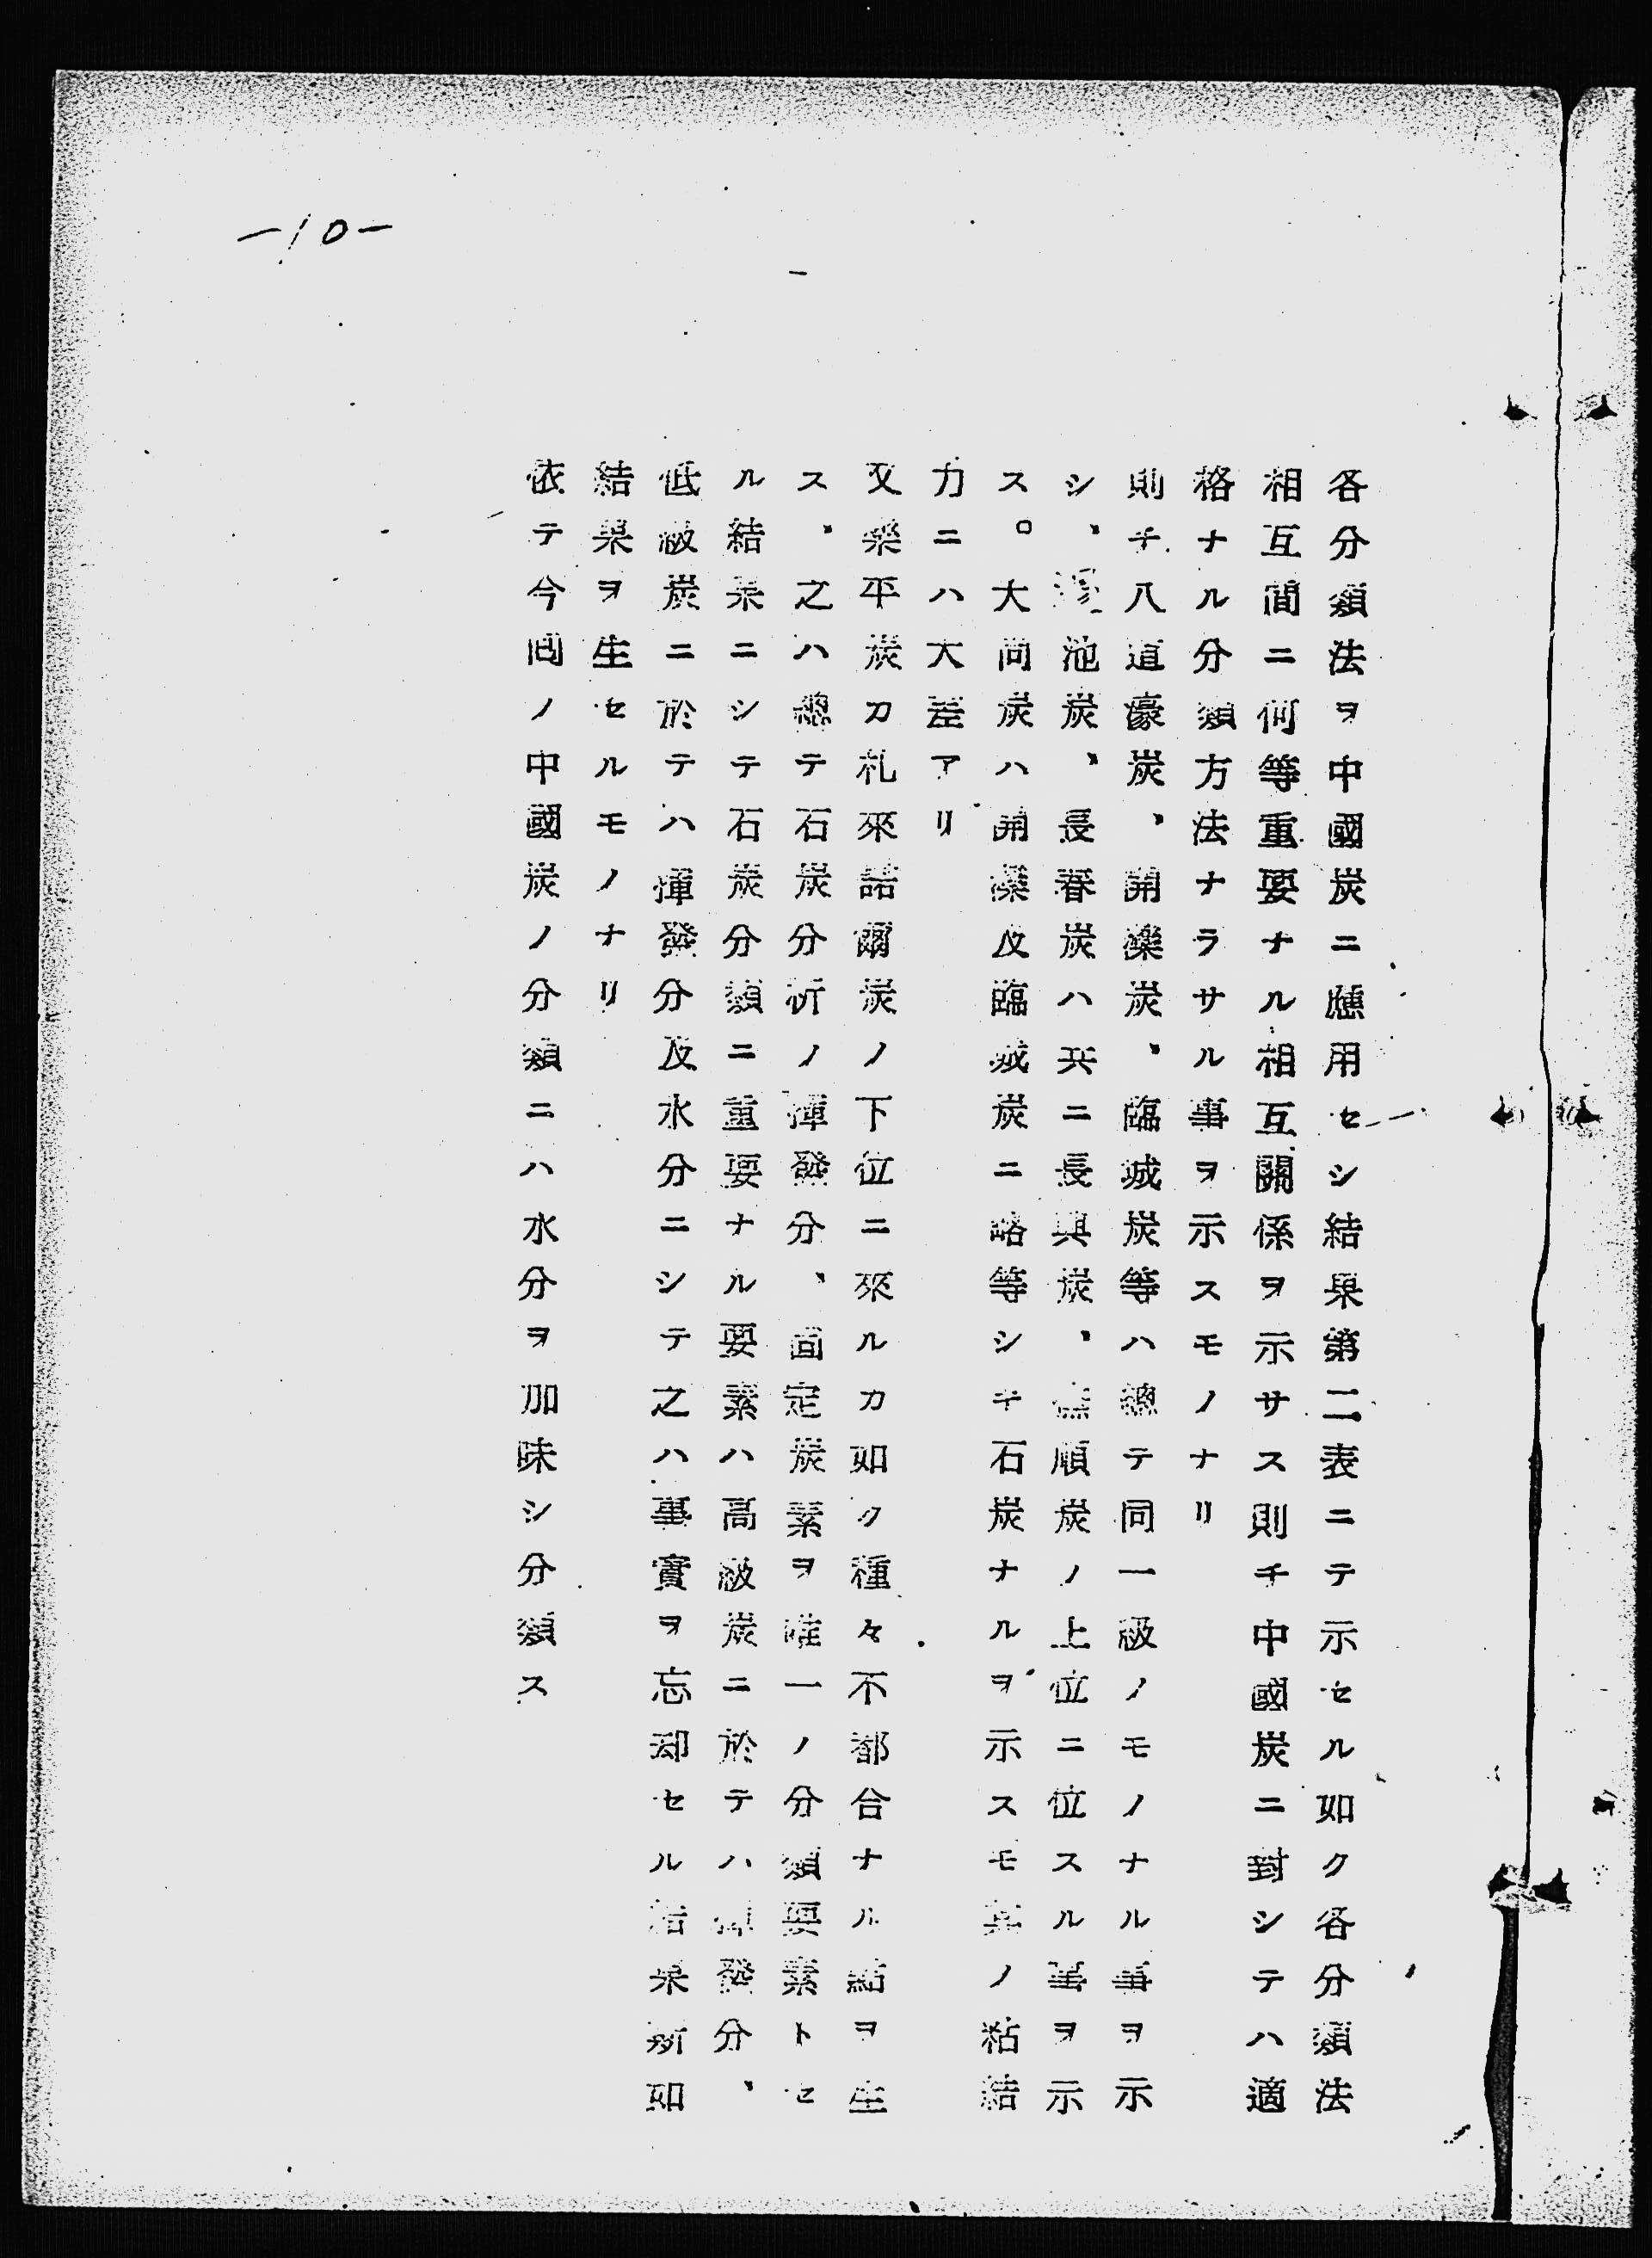 —10—
各分類法ヲ中國炭ニ應用セシ結果第二表ニテ示セル如ク各分類法
相互間ニ何等重要ナル相互關係ヲ示サス則チ中國炭ニ對シテハ適
格ナル分類方法ナラサル事ヲ示スモノナリ
則チ八道濠炭、開灤炭、臨城炭等ハ總テ同一級ノモノナルヲ示
シ、池炭、長春炭ハ共ニ長興炭、撫順炭ノ上位ニ位スル事ヲ示
ス。大同炭ハ開灤及臨城炭ニ略等シキ石炭ナルヲ示スモ其ノ粘結
力ニハ大差アリ
又樂平炭カ札來諾爾炭ノ下位ニ來ルカ如ク種々不都合ナル點ヲ生
ス、之ハ總テ石炭分析ノ揮發分、固定炭素ヲ唯一ノ分類要素トセ
ル結果ニシテ石炭分類ニ重要ナル要素ハ高級炭ニ於テハ揮發分、
低級炭ニ於テハ揮發分及水分ニシテ之ハ事實ヲ忘却セル結果斯如
結果ヲ生セルモノナリ
依テ今囘ノ中國炭ノ分類ニハ水分ヲ加味シ分類ス